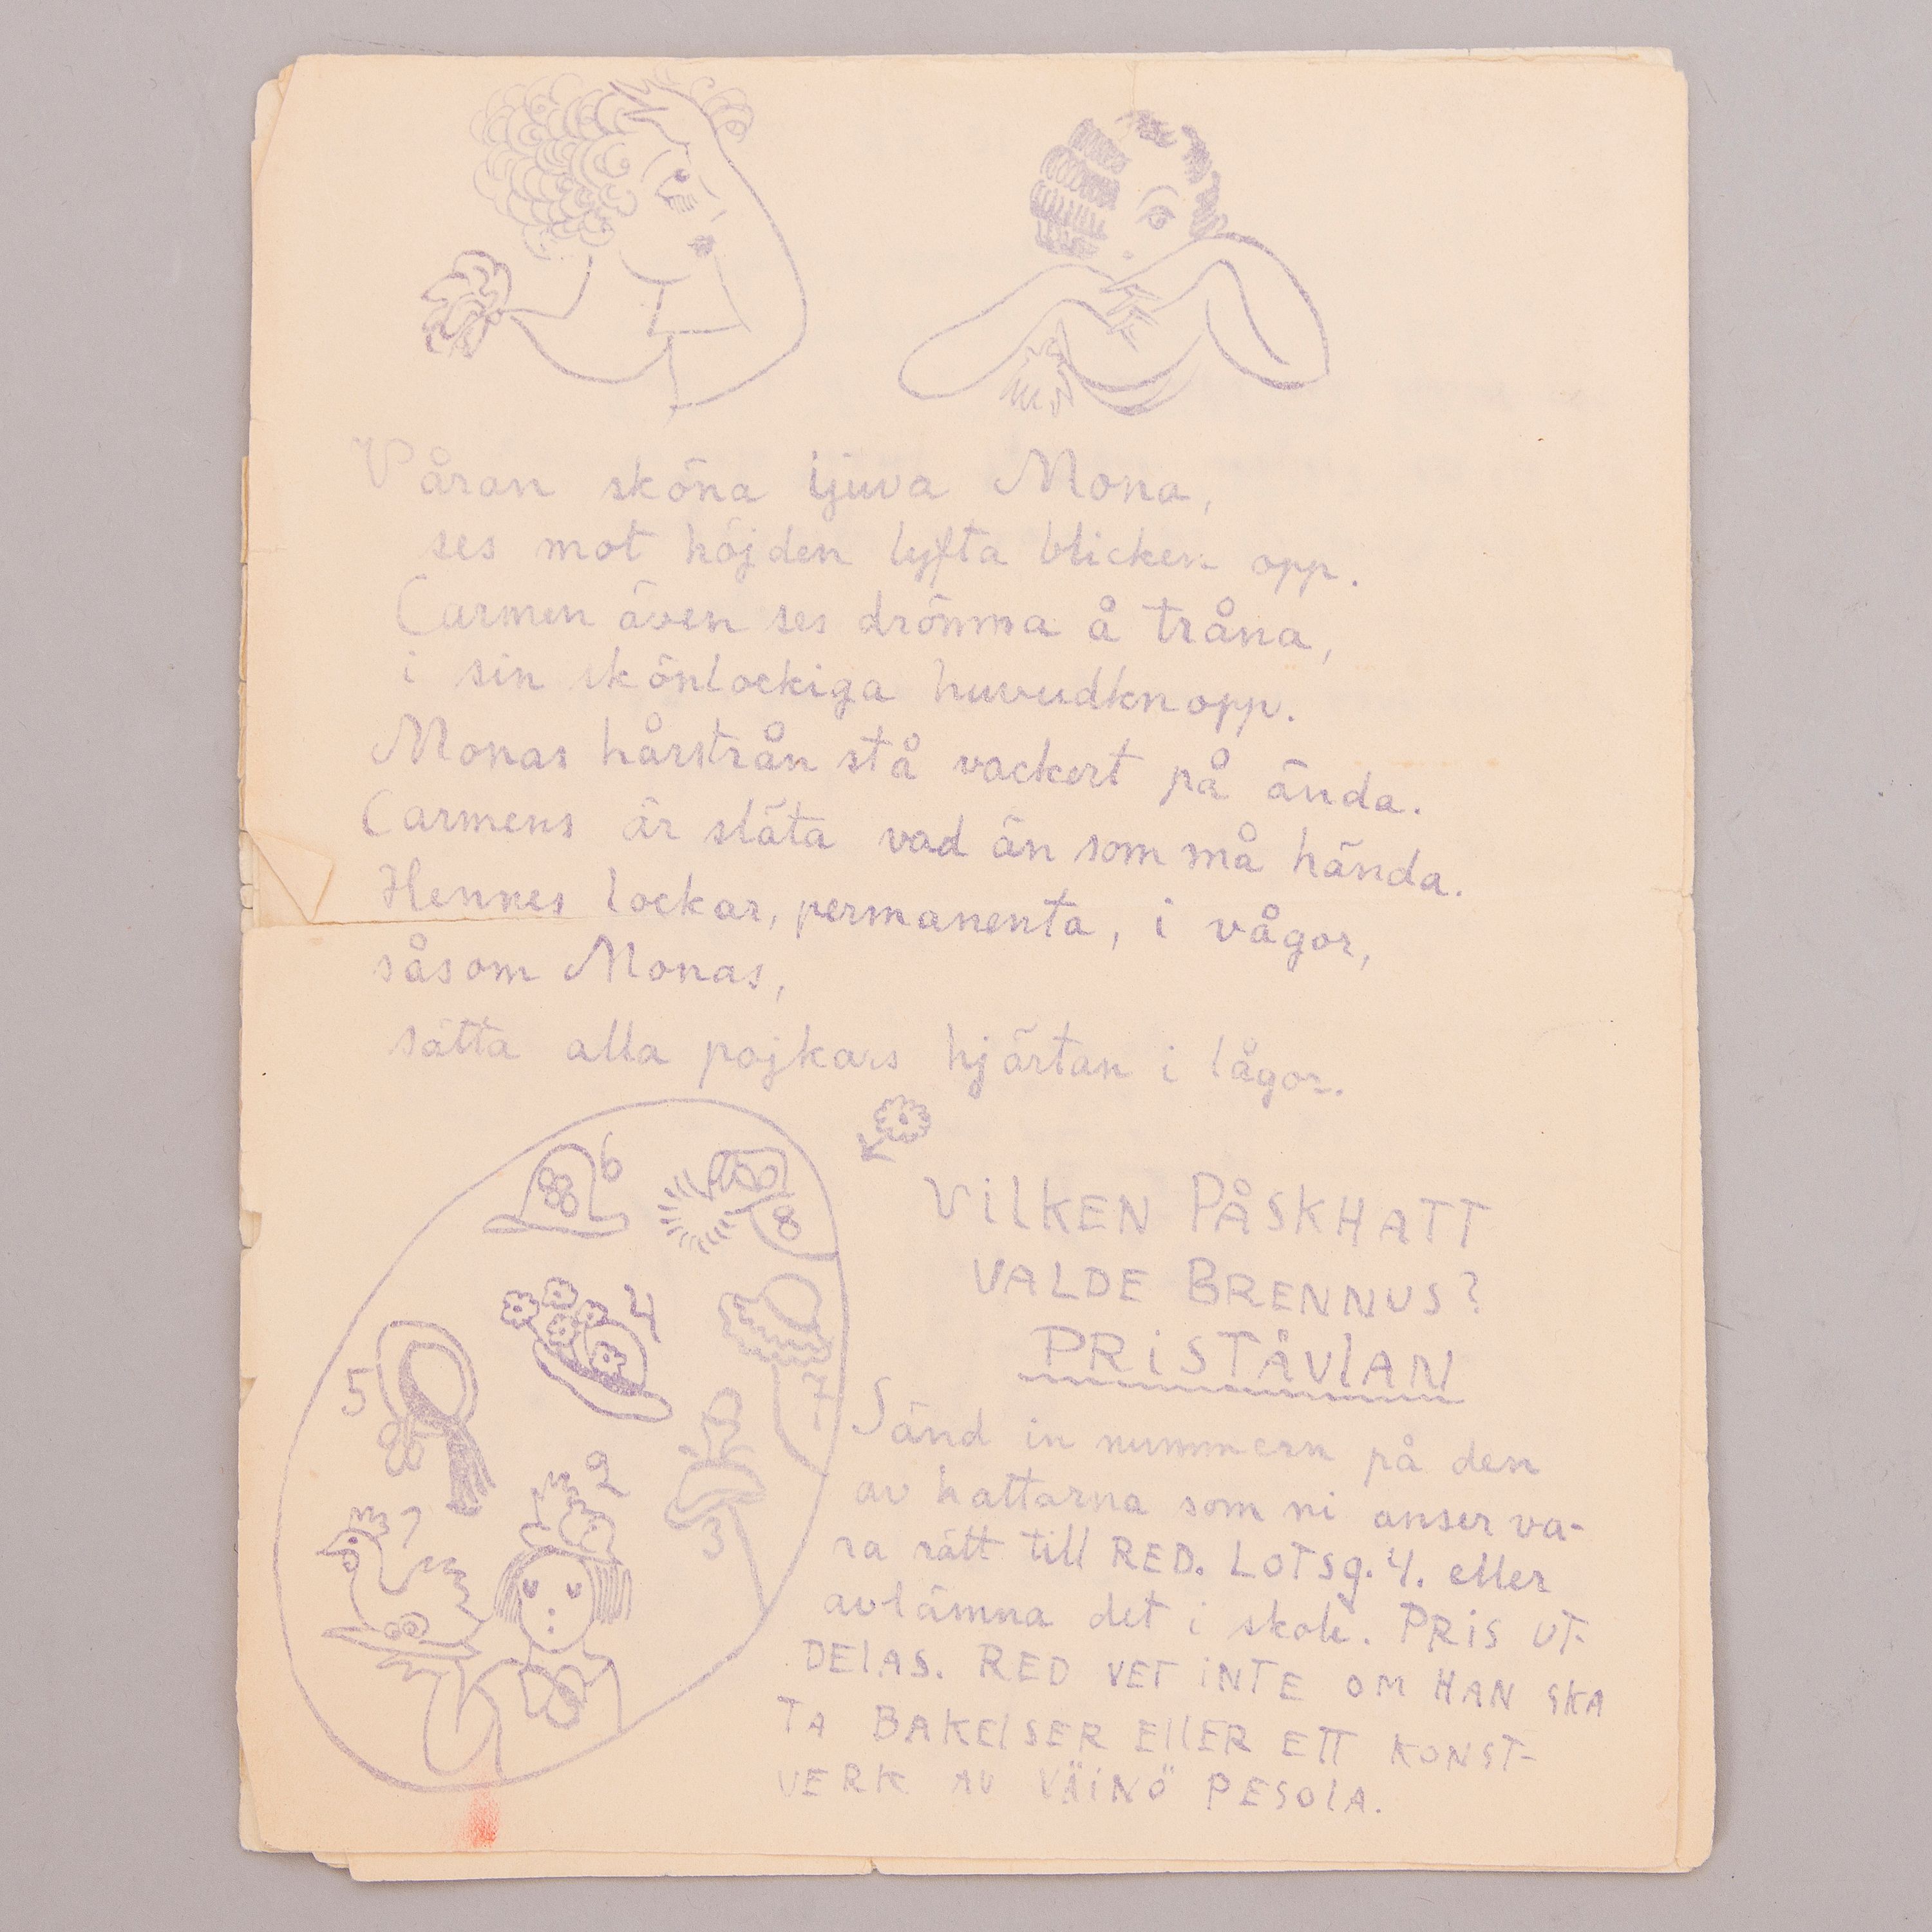 Våran sköna ljuva Mona,
ses mot höjden lyfta blicken opp.
Carmen även ses drömma å tråna,
i sin skönlockiga huvudknopp.
Monas hårstrån stå vackert på ända.
Carmens är släta vad än som må hända.
Hennes lockar, permanenta, i vågor,
såsom Monas,
sätta alla pojkars hjärtan i lågor.
6
8
4
5
7
2
3
1
VILKEN PÅSKHATT
VALDE BRENNUS?
PRISTÄVLAN
Sänd in nummern på den
av hattarna som ni anser va-
ra rätt till RED. LOTSG. 4. eller
avlämna det i skole. PRIS UT-
DELAS. RED VET INTE OM HAN SKA
TA BAKELSER ELLER ETT KONST-
VERK AV VÄINÖ PESOLA.